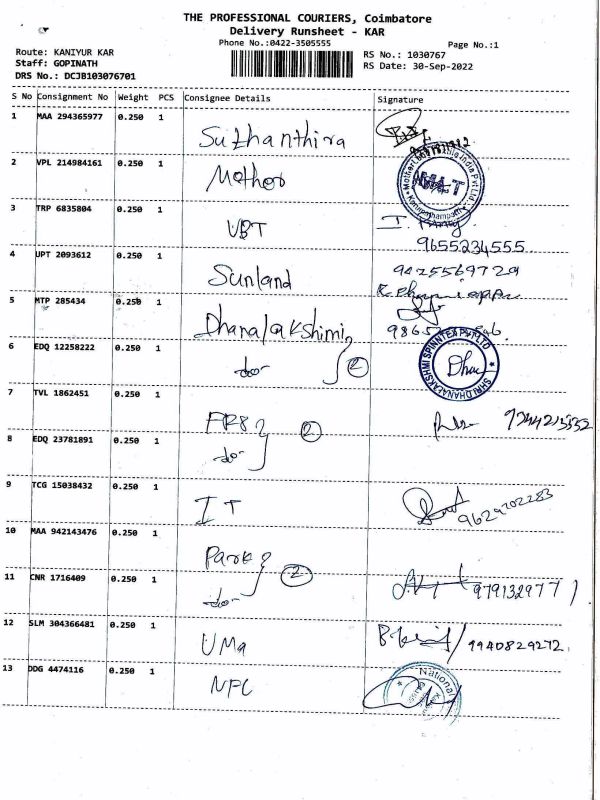 THE PROFESSIONAL COURIERS, Coimbatore
Delivery Runsheet - KAR
Phone No.:0422-3505555
Page No.:1
Route: KANIYUR KAR
Staff: GOPINATH
DRS No.: DCJB103076701
RS No.: 1030767
RS Date: 30-Sep-2022
S No Consignment No Weight PCS Consignee Details Signature
1 MAA 294365977 0.250 1 Suthanthira
2 VPL 214984161 0.250 1 Mother
3 TRP 6835804 0.250 1 VBT
9655234555
4 UPT 2093612 0.250 1 Sunland 9425569729
5 MTP 285434 0.250 1 Dhanalakshimi
6 EDQ 12258222 0.250 1 -do- 2
SHRI DHANALAKSHMI SPINNTEX PVT LTD
7 TVL 1862451 0.250 1 FRS 2
8 EDQ 23781891 0.250 1 -do-
9 TCG 15038432 0.250 1 IT 9629202283
10 MAA 942143476 0.250 1 Park 2
11 CNR 1716409 0.250 1 -do- 979132977
12 SLM 304366481 0.250 1 UMa 9940829272
13 DDG 4474116 0.250 1 NPC
National